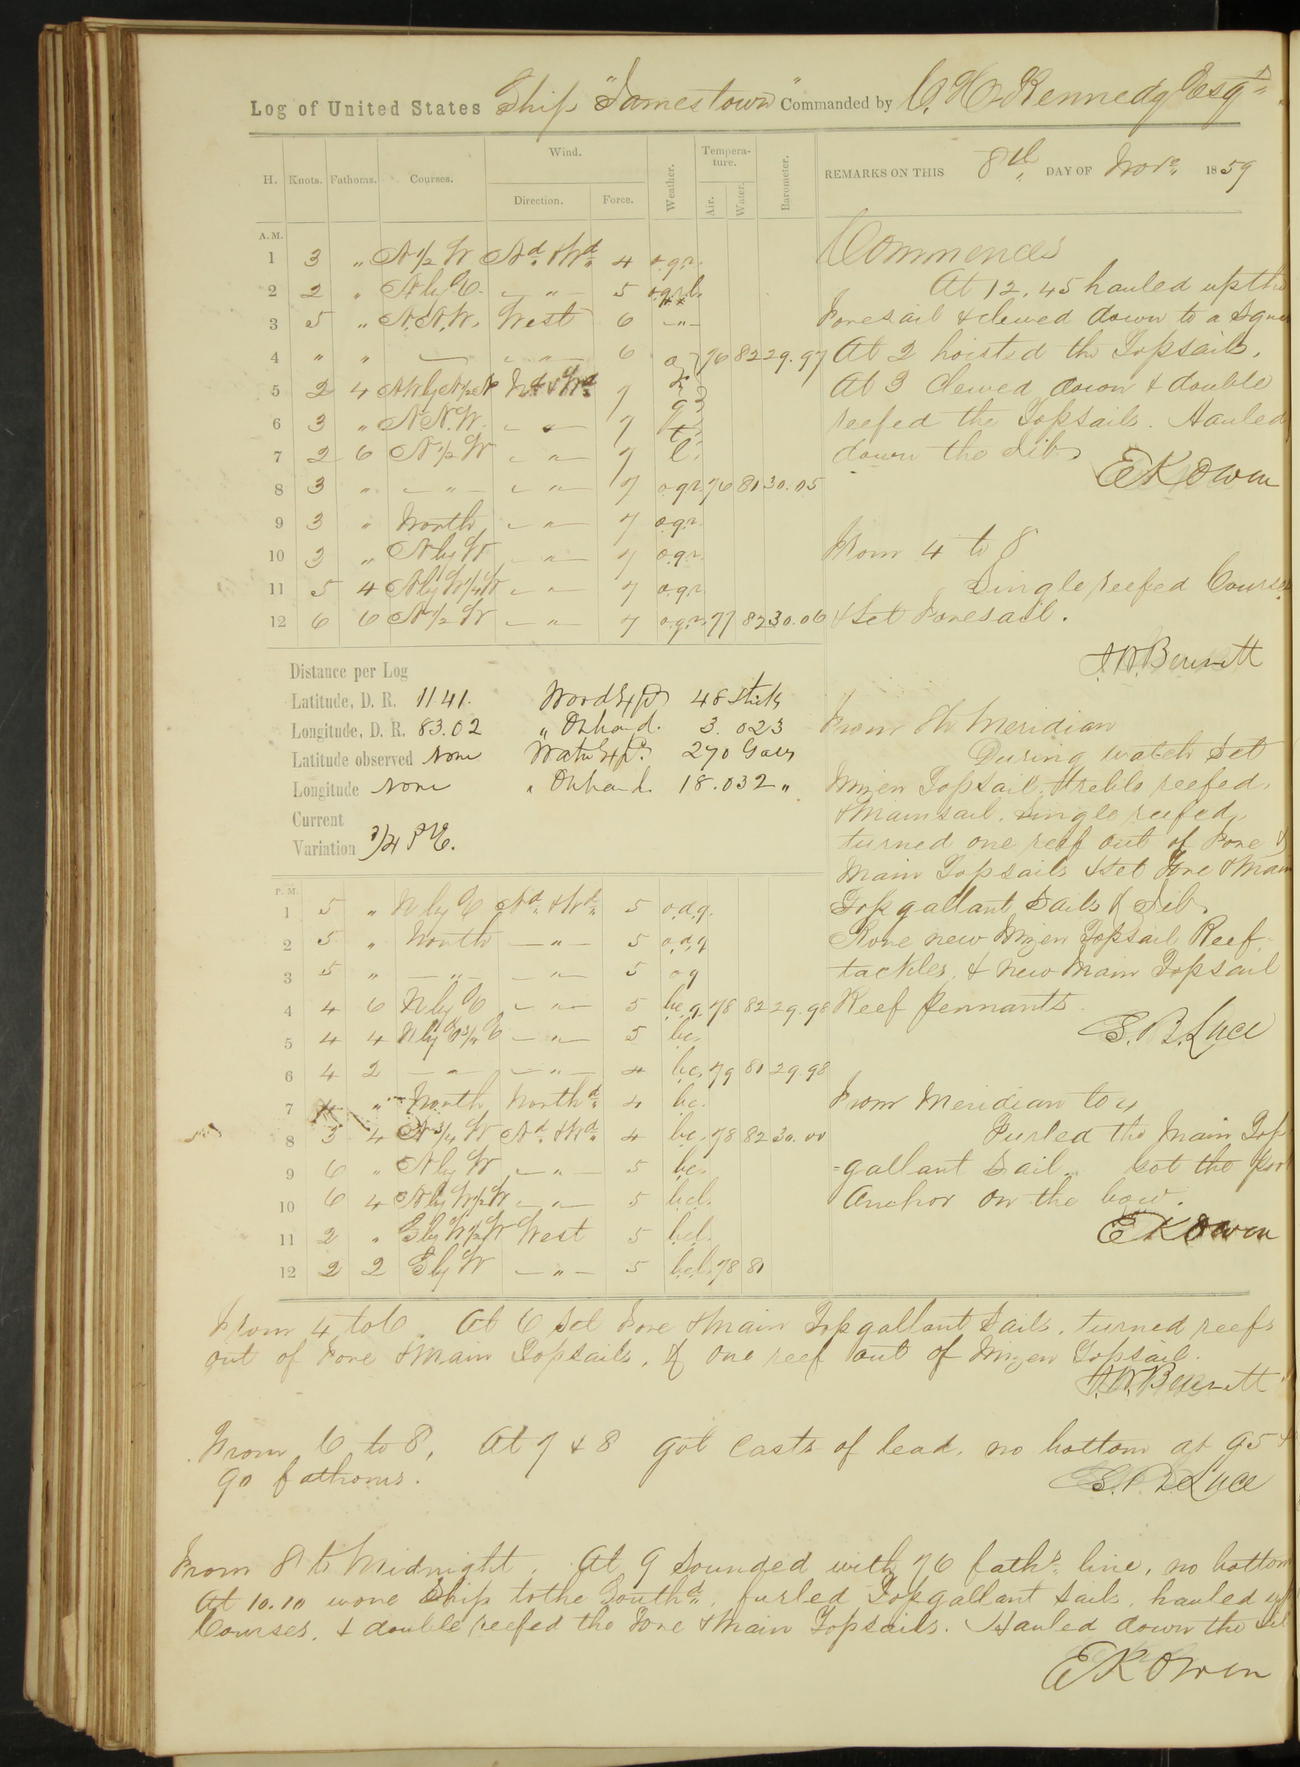 Log of United States Ship "Jamestown" Commanded by C. H. Kennedy Esqr.
H. Knots. Fathoms. Courses. Wind. Direction. Force. Weather. Tempera-ture. Air. Water. Barometer. REMARKS ON THIS 8th DAY OF Novr. 1859
A.M.
1 3 " N 1/2 W Nd. & Wd. 4 o.q.r.
2 2 " N by E — " — 5 o.q.r.l.
3 5 " N.N.W. West 6 — " —
4 " " — — " — 6 76 82 29.97
5 2 4 Nd. & Wd. 7
6 3 " N.N.W. — " — 7
7 2 6 N 1/2 W — " — 7
8 3 " — " — — " — 7 o.q.r. 76 81 30.05
9 3 " North — " — 7 o.q.r.
10 3 " N by W — " — 7 o.q.r.
11 5 4 N by W 1/4 W — " — 7 o.q.r.
12 6 6 N 1/2 W — " — 7 o.q.r. 77 82 30.06
Commences
At 12.45 hauled up the
Foresail & clewed down to a
At 2 hoisted the Topsails.
At 3 clewed down & double
reefed the Topsails. Hauled
down the Jib.
E K Owen
From 4 to 8
Single reefed Courses
& Set Foresail.
J. W. Bennett
Distance per Log
Latitude, D. R. 11 41. Wood Expd. 48 sticks
Longitude, D. R. 83.02 " On hand. 3.023
Latitude observed None Water Expd. 270 Galls
Longitude None " On hand. 18.032 "
Current
Variation 3/4 Pt E.
From 8 to Meridian
During watch Set
Mizen Topsail, treble reefed,
& Mainsail, single reefed,
turned one reef out of Fore &
Main Topsails & Set Fore & Main
Topgallant Sails & Jib.
Rove new Mizen Topsail Reef-
tackles, & new Main Topsail
Reef pennants.
S. B. Luce
P. M.
1 5 " N by E Nd. & Wd. 5 o.d.q.
2 5 " North — " — 5 o.d.q
3 5 " — " — — " — 5 o q
4 4 6 N by E — " — 5 b.c.q. 78 82 29.98
5 4 4 N by E 3/4 E — " — 5 b.c.
6 4 2 — " — — " — 4 b.c. 79 81 29.98
7 4 " North Northd. 4 b.c.
8 5 4 N 3/4 W Nd. & Wd. 4 b.c. 78 82 30.00
9 6 " N by W — " — 5 b.c.
10 6 4 N by W 1/2 W — " — 5 b.c.l.
11 2 " S by W 1/2 W West 5 b.c.l.
12 2 2 S by W — " — 5 b.c.l. 78 81
From Meridian to 4
Furled the Main Top
-gallant Sail. Got the port
Anchor on the bow.
E K Owen
From 4 to 6. At 6 Set Fore & Main Topgallant Sails, turned reefs
out of Fore & Main Topsails, & one reef out of Mizen Topsail.
J. W. Bennett
From 6 to 8, At 7 & 8 got casts of lead, no bottom at 95 &
90 fathoms.
S. B. Luce
From 8 to Midnight. At 9 Sounded with 76 faths. line, no bottom
At 10.10 wore Ship to the Southd., furled Topgallant Sails, hauled up
Courses, & double reefed the Fore & Main Topsails. Hauled down the Jib
E K Owen